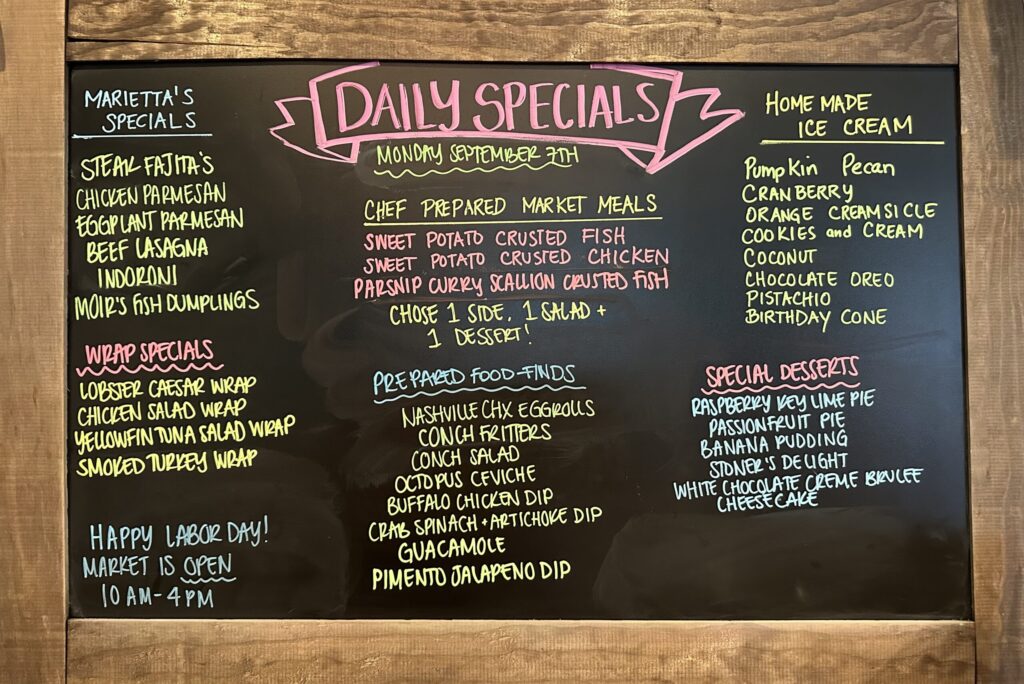 DAILY SPECIALS
MONDAY SEPTEMBER 7TH
MARIETTA'S
SPECIALS
STEAK FAJITA'S
CHICKEN PARMESAN
EGGPLANT PARMESAN
BEEF LASAGNA
INDORONI
MOIR'S FISH DUMPLINGS
WRAP SPECIALS
LOBSTER CAESAR WRAP
CHICKEN SALAD WRAP
YELLOWFIN TUNA SALAD WRAP
SMOKED TURKEY WRAP
HAPPY LABOR DAY!
MARKET IS OPEN
10 AM-4 PM
CHEF PREPARED MARKET MEALS
SWEET POTATO CRUSTED FISH
SWEET POTATO CRUSTED CHICKEN
PARSNIP CURRY SCALLION CRUSTED FISH
CHOSE 1 SIDE, 1 SALAD +
1 DESSERT!
PREPARED FOOD-FINDS
NASHVILLE CHX EGGROLLS
CONCH FRITTERS
CONCH SALAD
OCTOPUS CEVICHE
BUFFALO CHICKEN DIP
CRAB SPINACH + ARTICHOKE DIP
GUACAMOLE
PIMENTO JALAPENO DIP
HOME MADE
ICE CREAM
PUMPKIN PECAN
CRANBERRY
ORANGE CREAMSICLE
COOKIES and CREAM
COCONUT
CHOCOLATE OREO
PISTACHIO
BIRTHDAY CONE
SPECIAL DESSERTS
RASPBERRY KEY LIME PIE
PASSIONFRUIT PIE
BANANA PUDDING
STONER'S DELIGHT
WHITE CHOCOLATE CREME BRULEE
CHEESECAKE